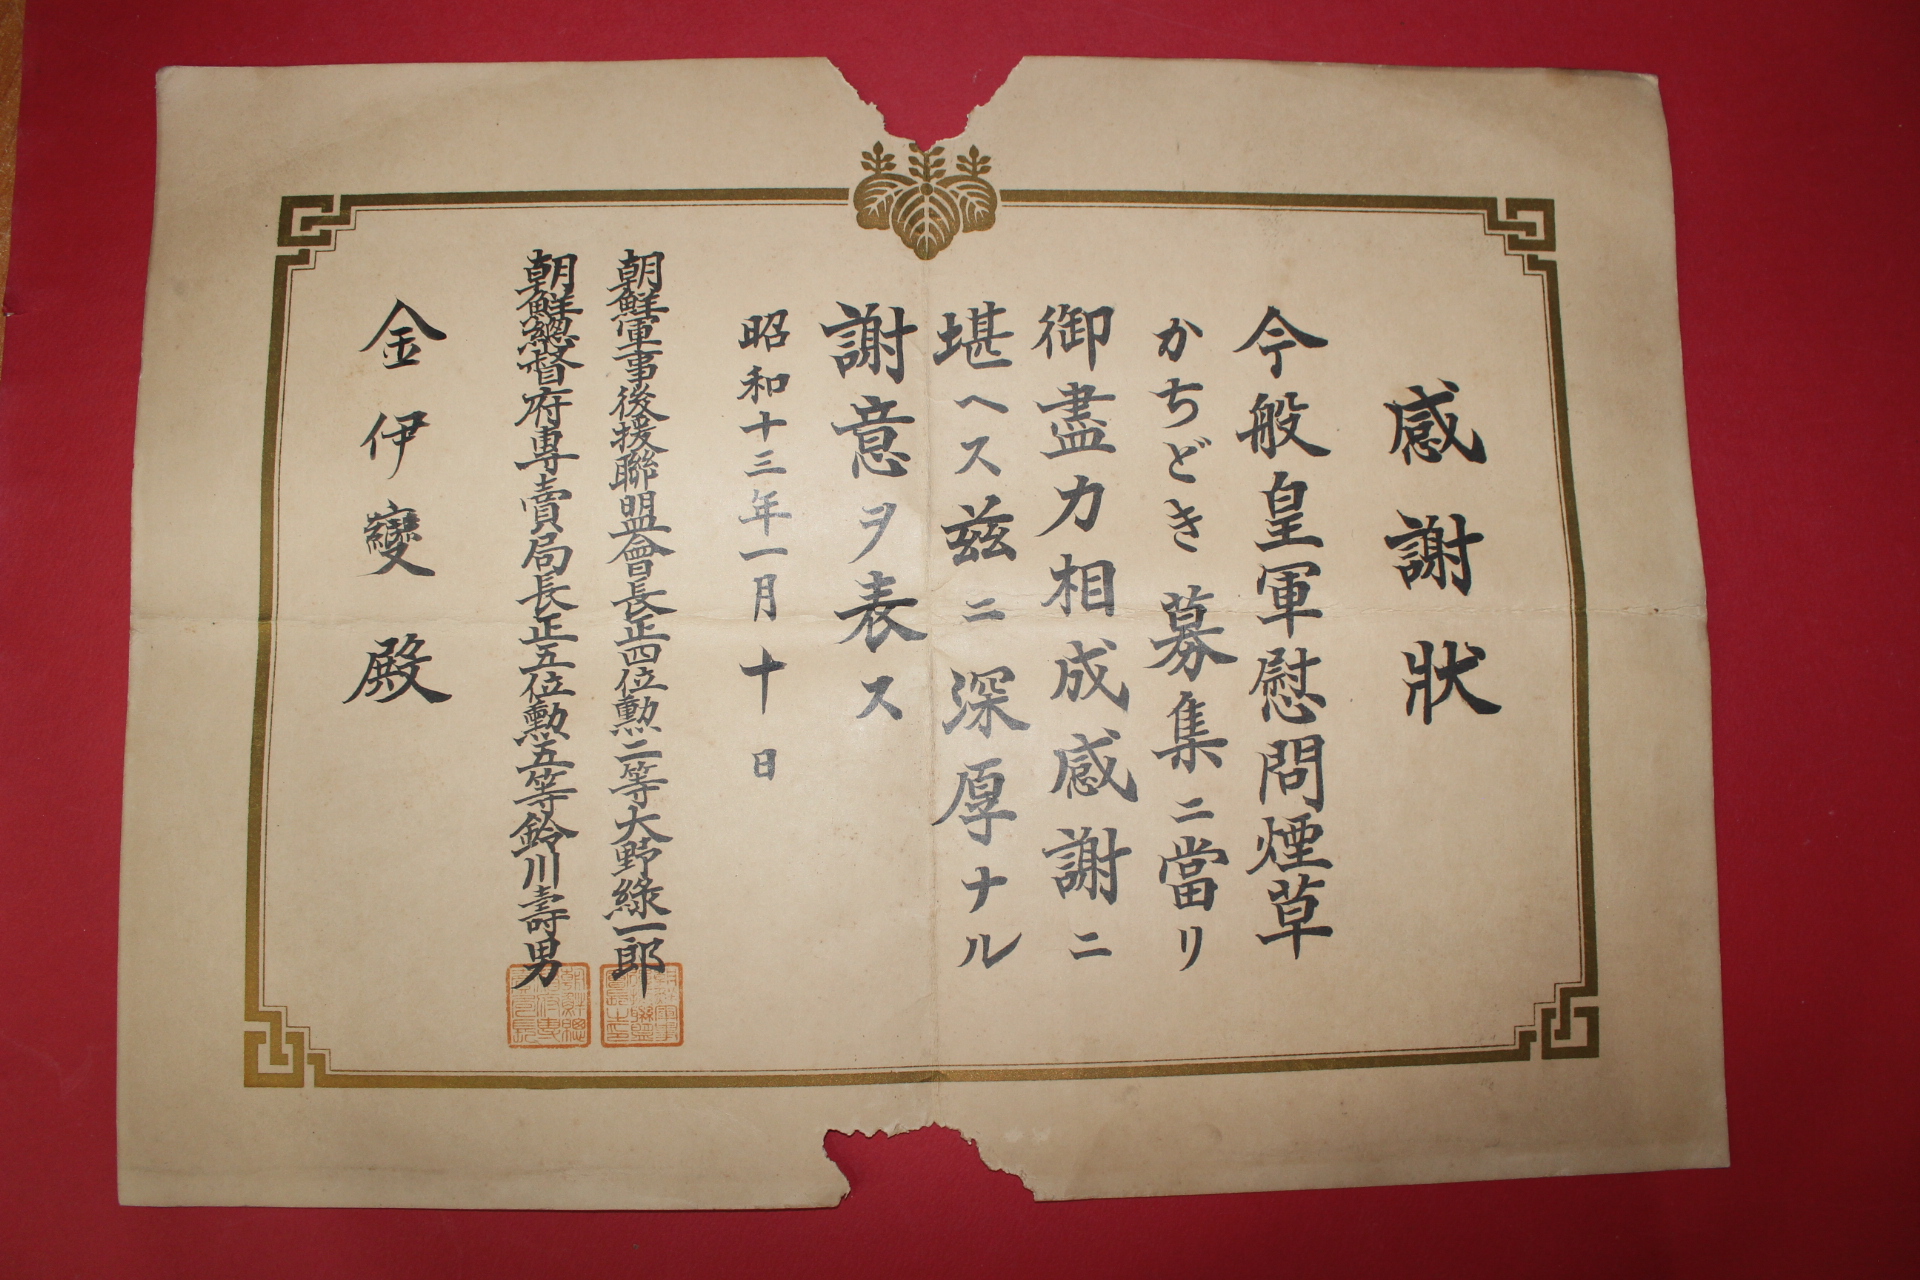 感謝狀
今般皇軍慰問煙草
かちどき募集ニ當リ
御盡力相成感謝ニ
堪ヘス茲ニ深厚ナル
謝意ヲ表ス
昭和十三年一月十日
朝鮮軍事後援聯盟會長正四位勲二等大野綠一郎
朝鮮總督府專賣局長正五位勲五等鈴川壽男
金伊變殿